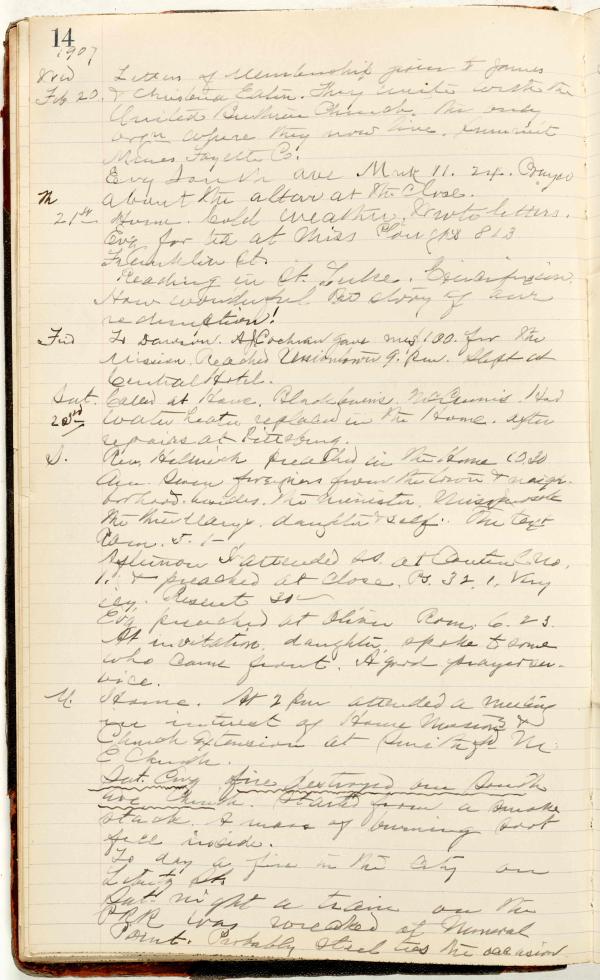 14
1907
Wed Letters of Membership given to James
Feb 20. & Christena Eaton. They unite with the
United Brethren Church. The only
orgn where they now live. Summit
Mines, Fayette Co.
Evg South ave Mark 11. 24.
about the altar at the close.
Th 21st Home. Cold weather. Wrote letters.
Evg for tea at Miss 813
Franklin St.
Reading in St. Luke. Crucifixion.
How wonderful the story of our
redemption!
Frid To Dawson. A J Cochran gave me $100. for the
Mission. Reached Uniontown 9. P.m. Slept at
Central Hotel.
Sat. Called at
23rd water heater replaced in the Home. after
repairs at Pittsburg.
S. Rev. preached in the Home 10.30
am. Seven foreigners from the town & neigh-
borhood. besides. the minister,
the daughter & self. The text
Rom. 5. 1
Afternoon I attended S.S. at No.
1. & preached at close. Ps. 32. 1. Very
icy. Present 30
Evg preached at Oliver Rom. 6. 23.
At invitation, daughter, spoke to some
who came front. A good prayer ser-
vice.
M. Home. At 2 P.m attended a meeting
in interest of Home Missions &
Church Extension at Smithfield M.
E Church.
Sat. Evg fire destroyed our South
ave Church. Started from a smoke
stack. A mass of burning soot
fell inside.
To day a fire in the City on
Liberty St.
Sat. night a train on the
PRR was wrecked at Mineral
Point. Probably steel ties the occasion